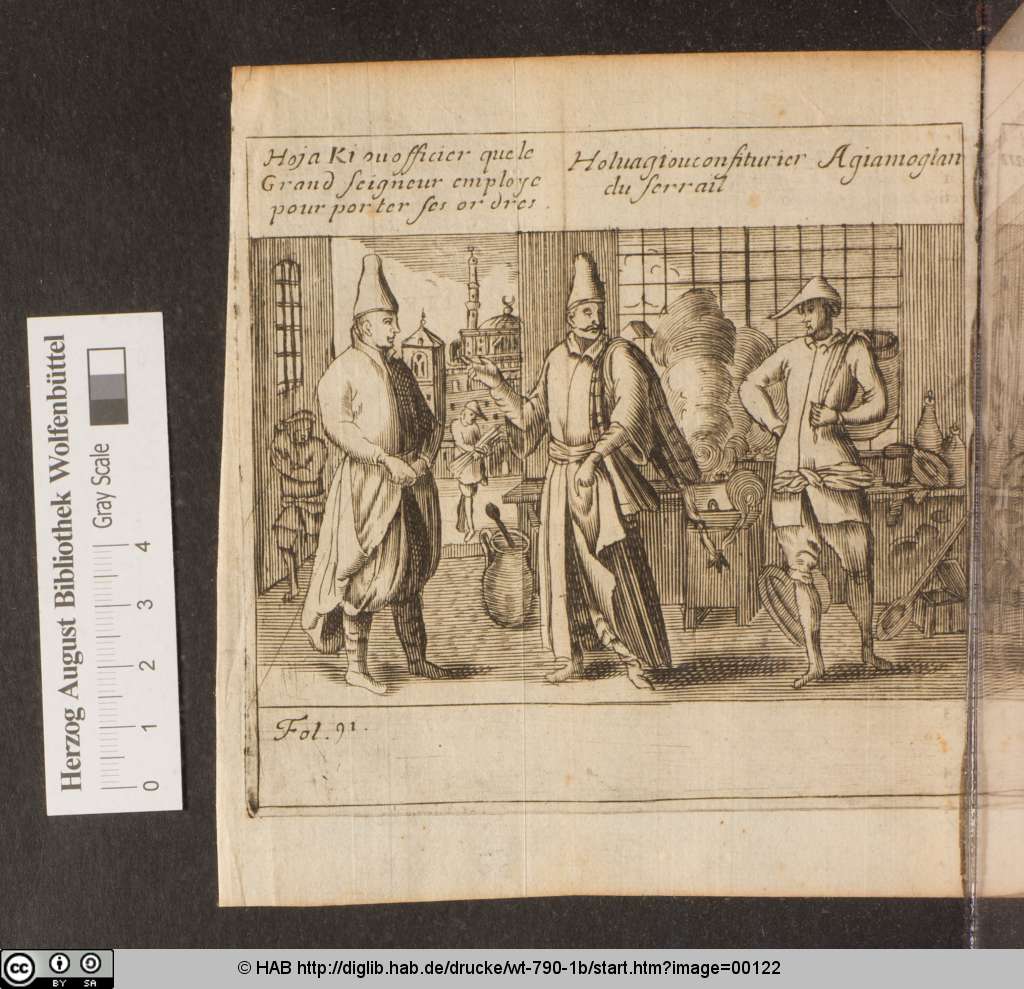 Hoja Ki ou officier que le
Grand seigneur employe
pour porter ses ordres.
Holuagi ou confiturier
du serrail
Agiamoglan
Fol. 91.
Herzog August Bibliothek Wolfenbüttel
Gray Scale
0 1 2 3 4
cc BY SA
© HAB http://diglib.hab.de/drucke/wt-790-1b/start.htm?image=00122